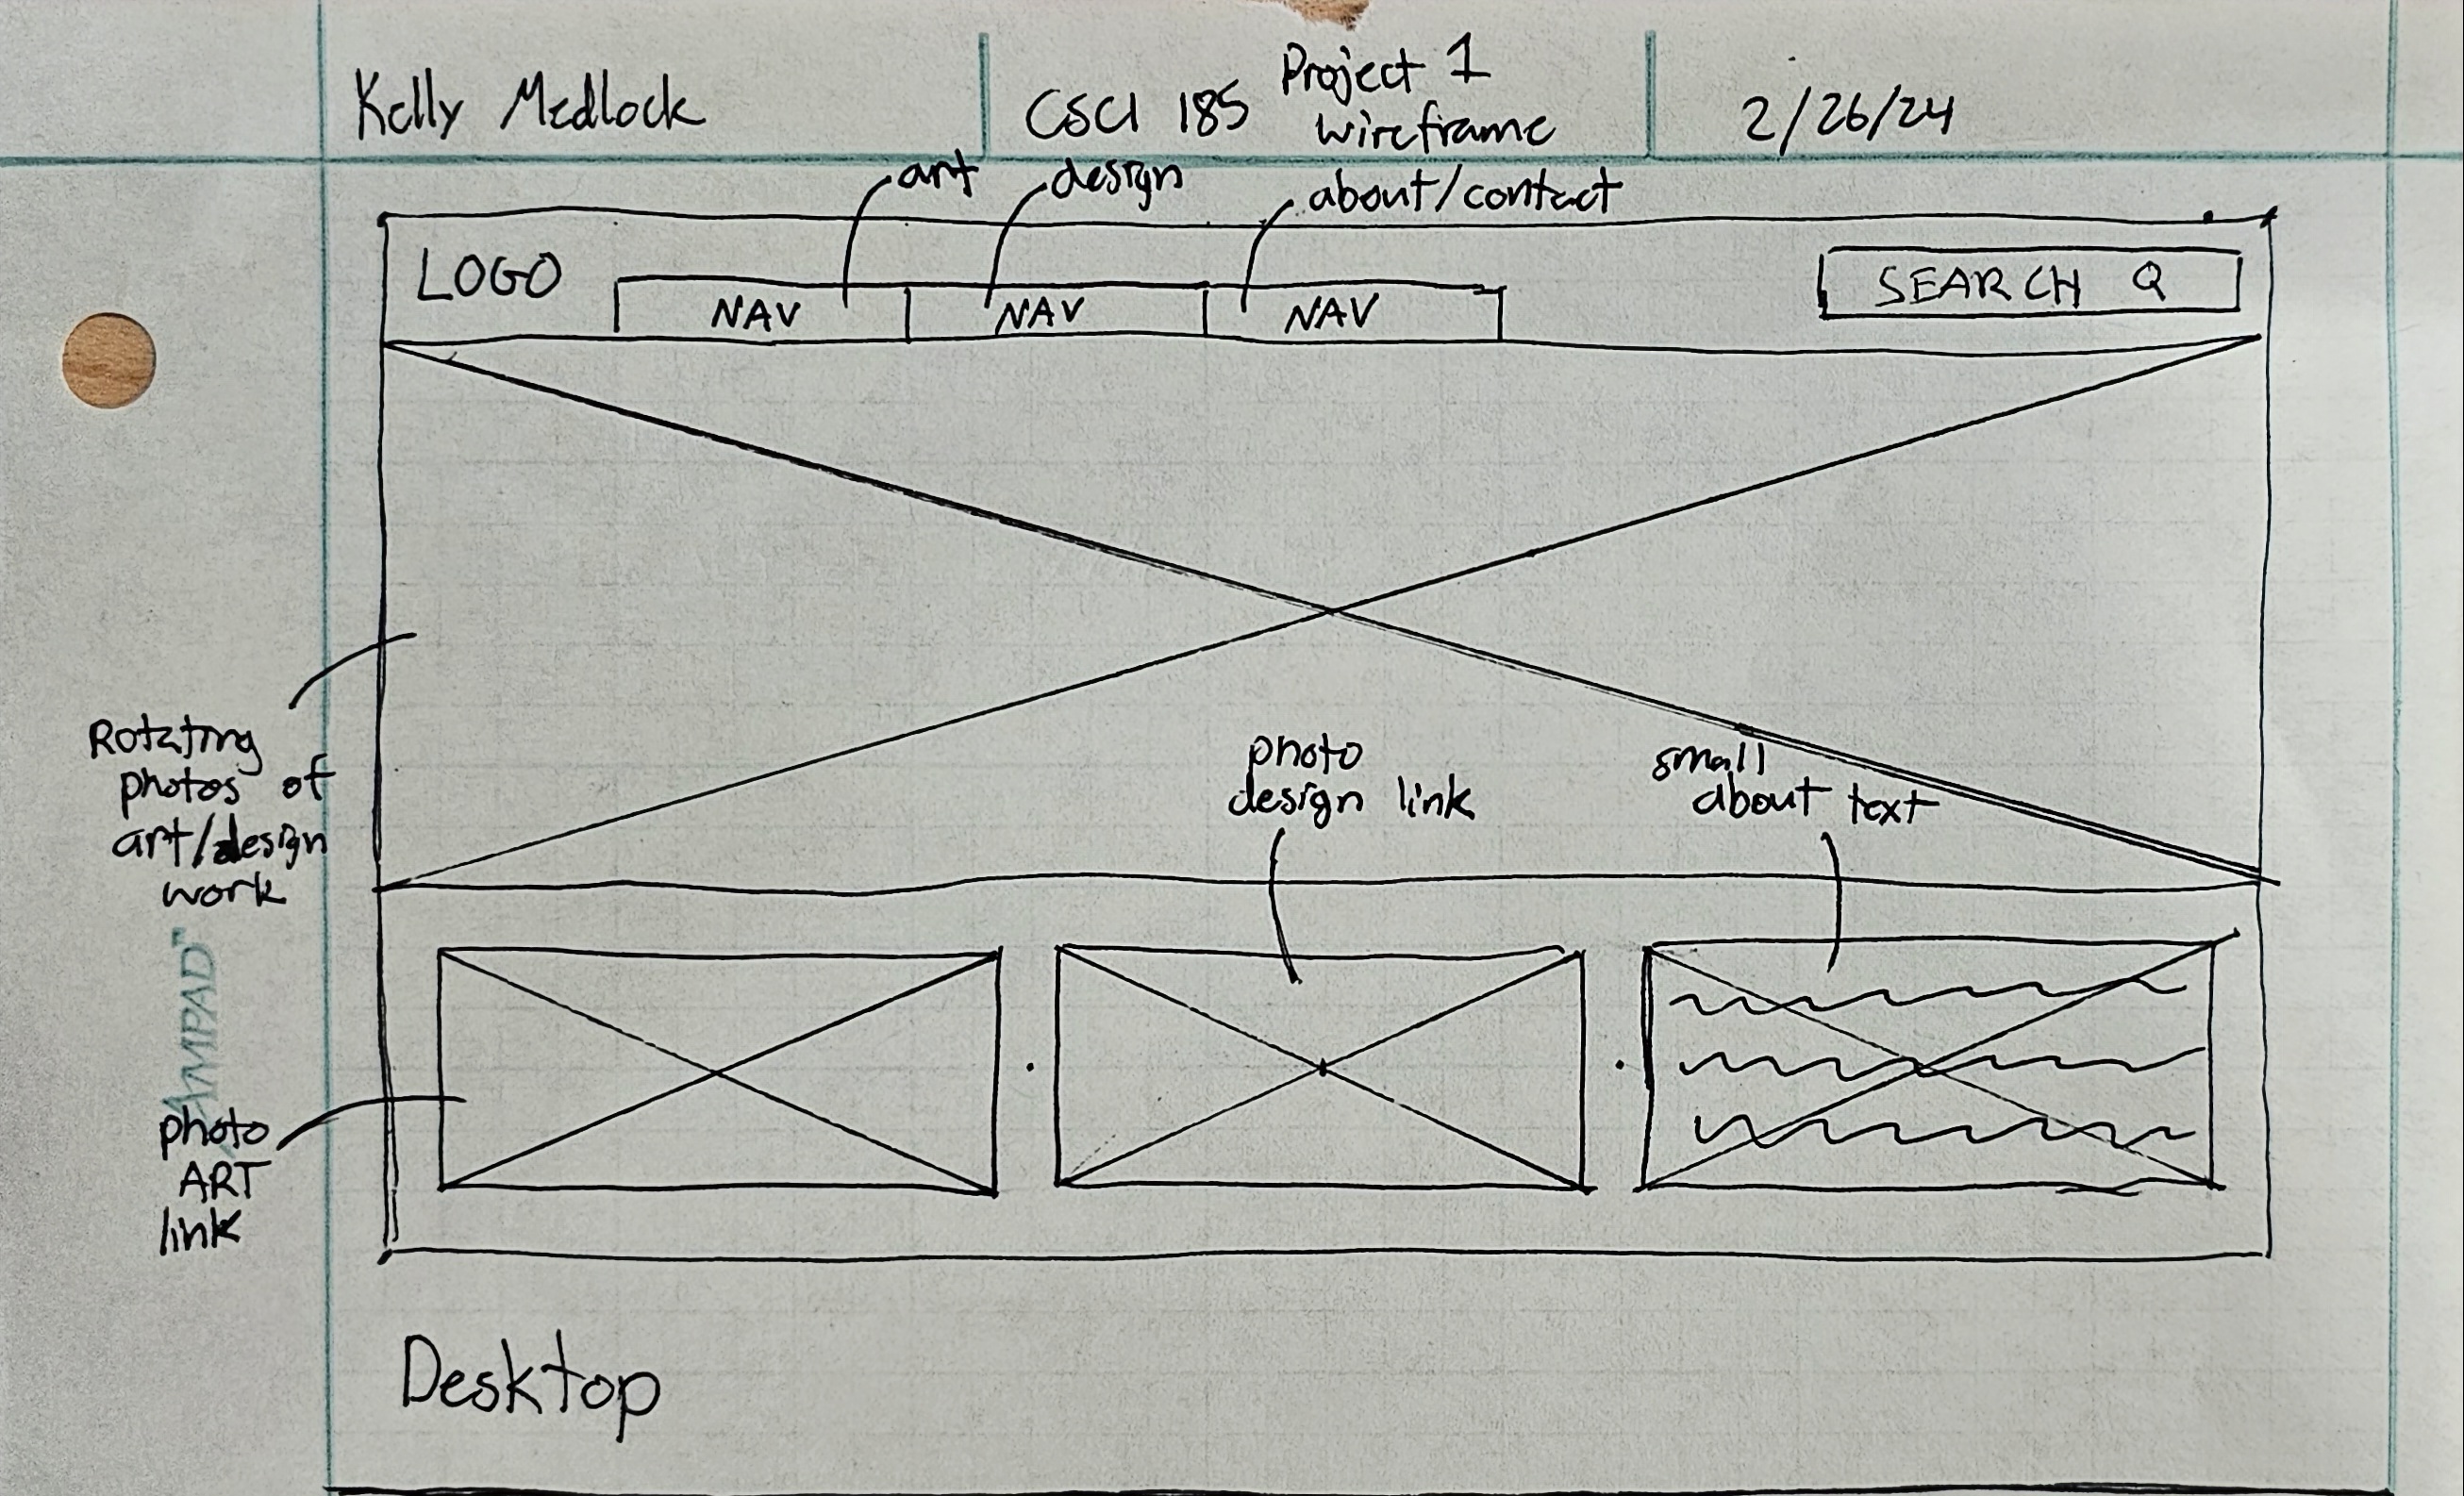 Kelly Medlock
CSCI 185
Project 1
wireframe
2/26/24
art
design
about/contact
LOGO
NAV
NAV
NAV
SEARCH
Rotating
photos of
art/design
work
photo
design link
small
about text
AMPAD™
photo
ART
link
Desktop